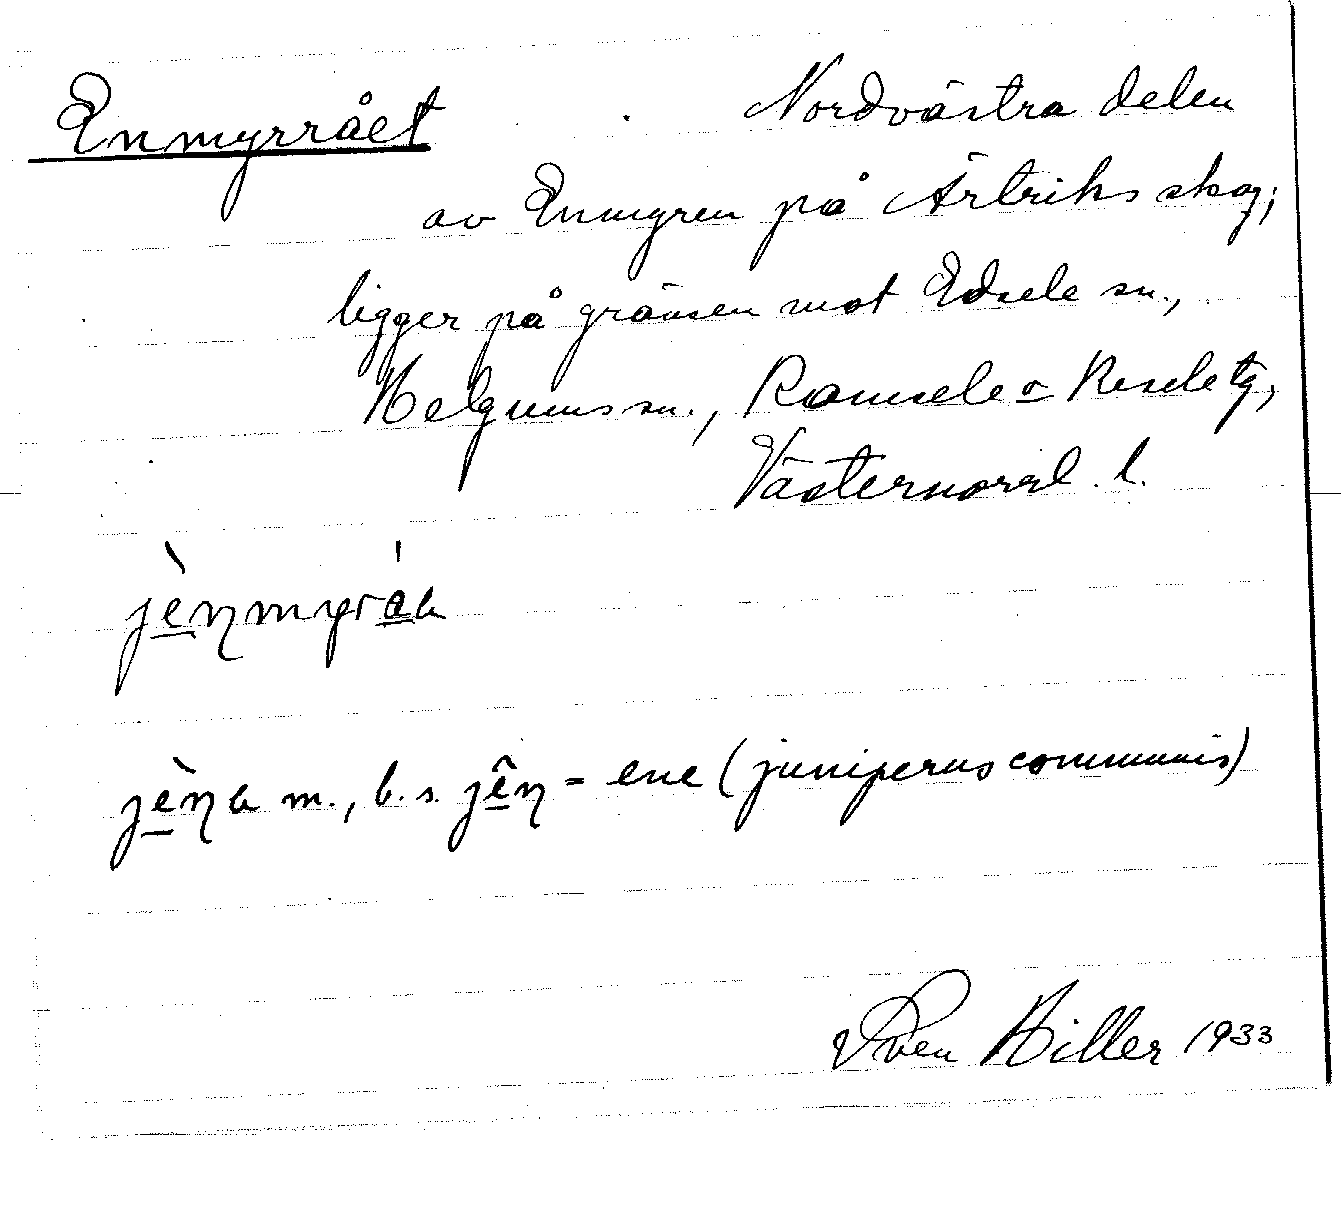 Enmyrrået Nordvästra delen
av Enmyren på Ärtriks skog;
ligger på gränsen mot Edsele sn.,
Helgums sn., Ramsele o Resele tg,
Västernorrl. l.
jè̲ŋmyrá̲a
jè̲ŋa m., b. s. jê̲ŋ = ene (juniperus communis)
Sven Hiller 1933